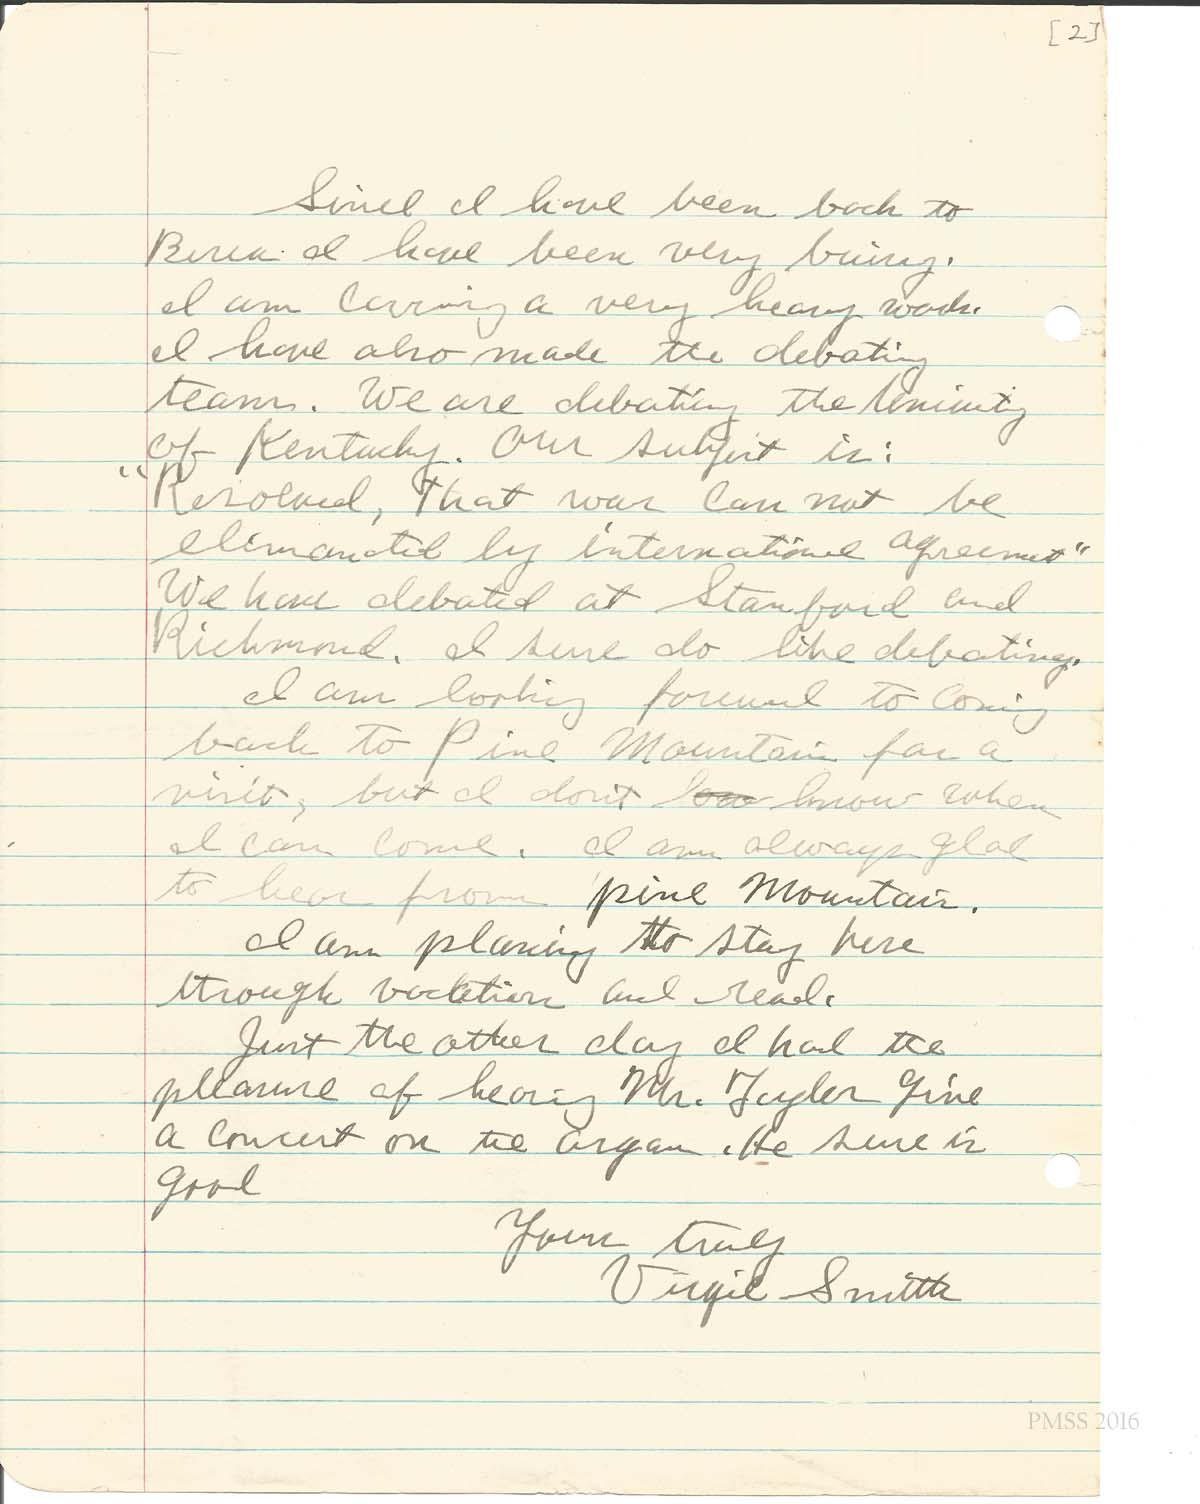 [2]
Since I have been back to
Berea. I have been very buisy.
I am carring a very heavy work.
I have also made the debating
team. We are debating the
of Kentucky. Our subject is:
"Resolved, That war can not be
by international agreement"
We have debated at Stanford and
Richmond. I sure do like debating.
I am looking forward to coming
back to Pine Mountain for a
visit, but I don't know when
I can come. I am always glad
to hear from pine Mountain.
I am planing to stay here
through and read.
Just the other day I had the
pleasure of hearing Mr. give
a concert on the organ. He sure is
good
Yours truly
Virgil Smith
PMSS 2016